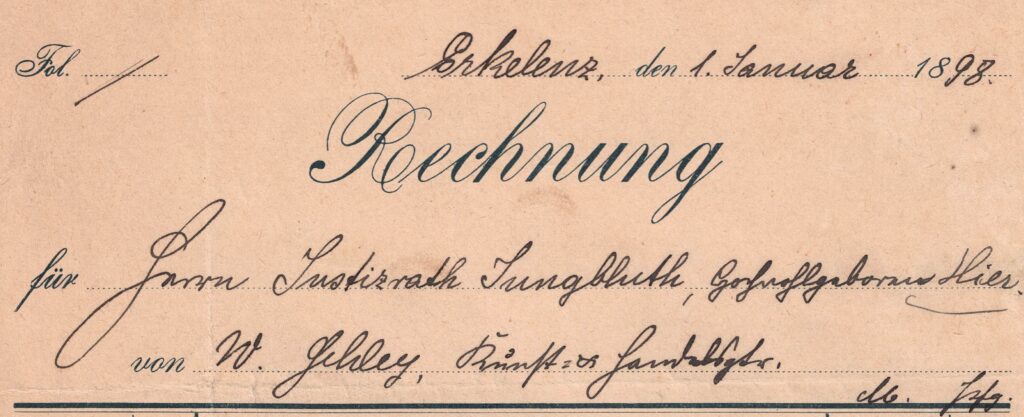 Fol. / Erkelenz, den 1. Januar 1898.
Rechnung
für Herrn Justizrath Jungbluth, Hochwohlgeboren Hier.
von W. Kunst- & Handelsgtr.
M. Pfg.